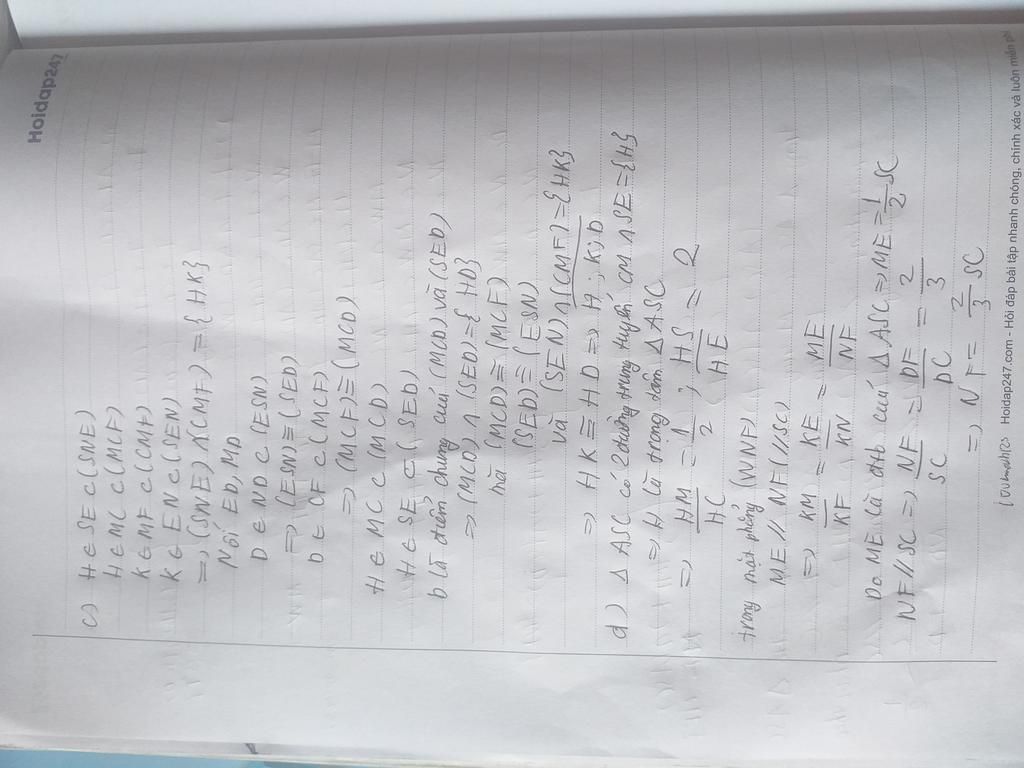 Hoidap247
c) H ∈ SE ⊂ (SNE)
H ∈ MC ⊂ (MCF)
K ∈ MF ⊂ (CMF)
K ∈ EN ⊂ (SEN)
=> (SNE) ∧ (CMF) = {HK}
Nối ED, MD
D ∈ ND ⊂ (ESN)
=> (ESN) ≡ (SED)
D ∈ CF ⊂ (MCF)
=> (MCF) ≡ (MCD)
H ∈ MC ⊂ (MCD)
H ∈ SE ⊂ (SED)
D là điểm chung cuả (MCD) và (SED)
=> (MCD) ∧ (SED) = {HD}
mà (MCD) ≡ (MCF)
(SED) ≡ (ESN)
và (SEN) ∧ (CMF) = {HK}
=> HK ≡ HD => H; K; D
d) Δ ASC có 2 đường trung tuyến CM ∧ SE = {H}
=> H là trọng tâm Δ ASC
=> HM/HC = 1/2 ; HS/HE = 2
trong mặt phẳng
ME // NF (//SC)
=> KM/KF = KE/KN = ME/NF
Do ME là đtb cuả Δ ASC => ME = 1/2 SC
NF // SC => NF/SC = DF/DC = 2/3
=> NF = 2/3 SC
Hoidap247.com - Hỏi đáp bài tập nhanh chóng, chính xác và luôn miễn phí